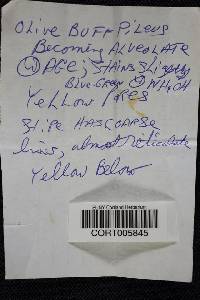 OLIVE BUFF PILEUS
Becoming ALVEOLATE
W AGE; STAINS Slightly
Blue-Green W NH4OH
Yellow PORES
STIPE HAS COARSE
lines, almost reticulate
Yellow Below
SUNY Cortland Herbarium
CORT005845